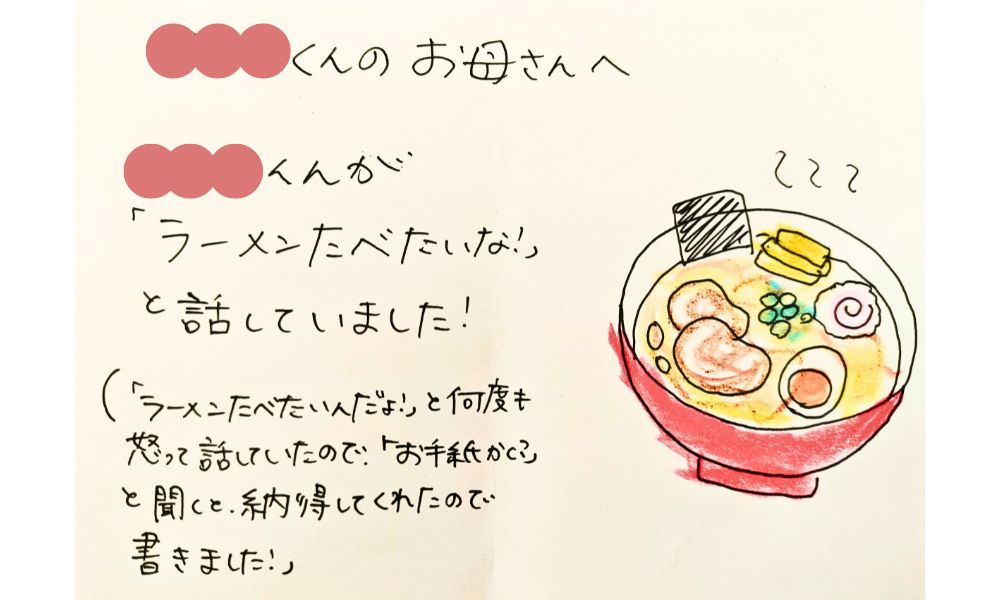 くんの お母さんへ
くんが
「ラーメンたべたいな!」
と話していました!
(「ラーメンたべたいんだよ!」と何度も
怒って話していたので、「お手紙かく?」
と聞くと、納得してくれたので
書きました!」